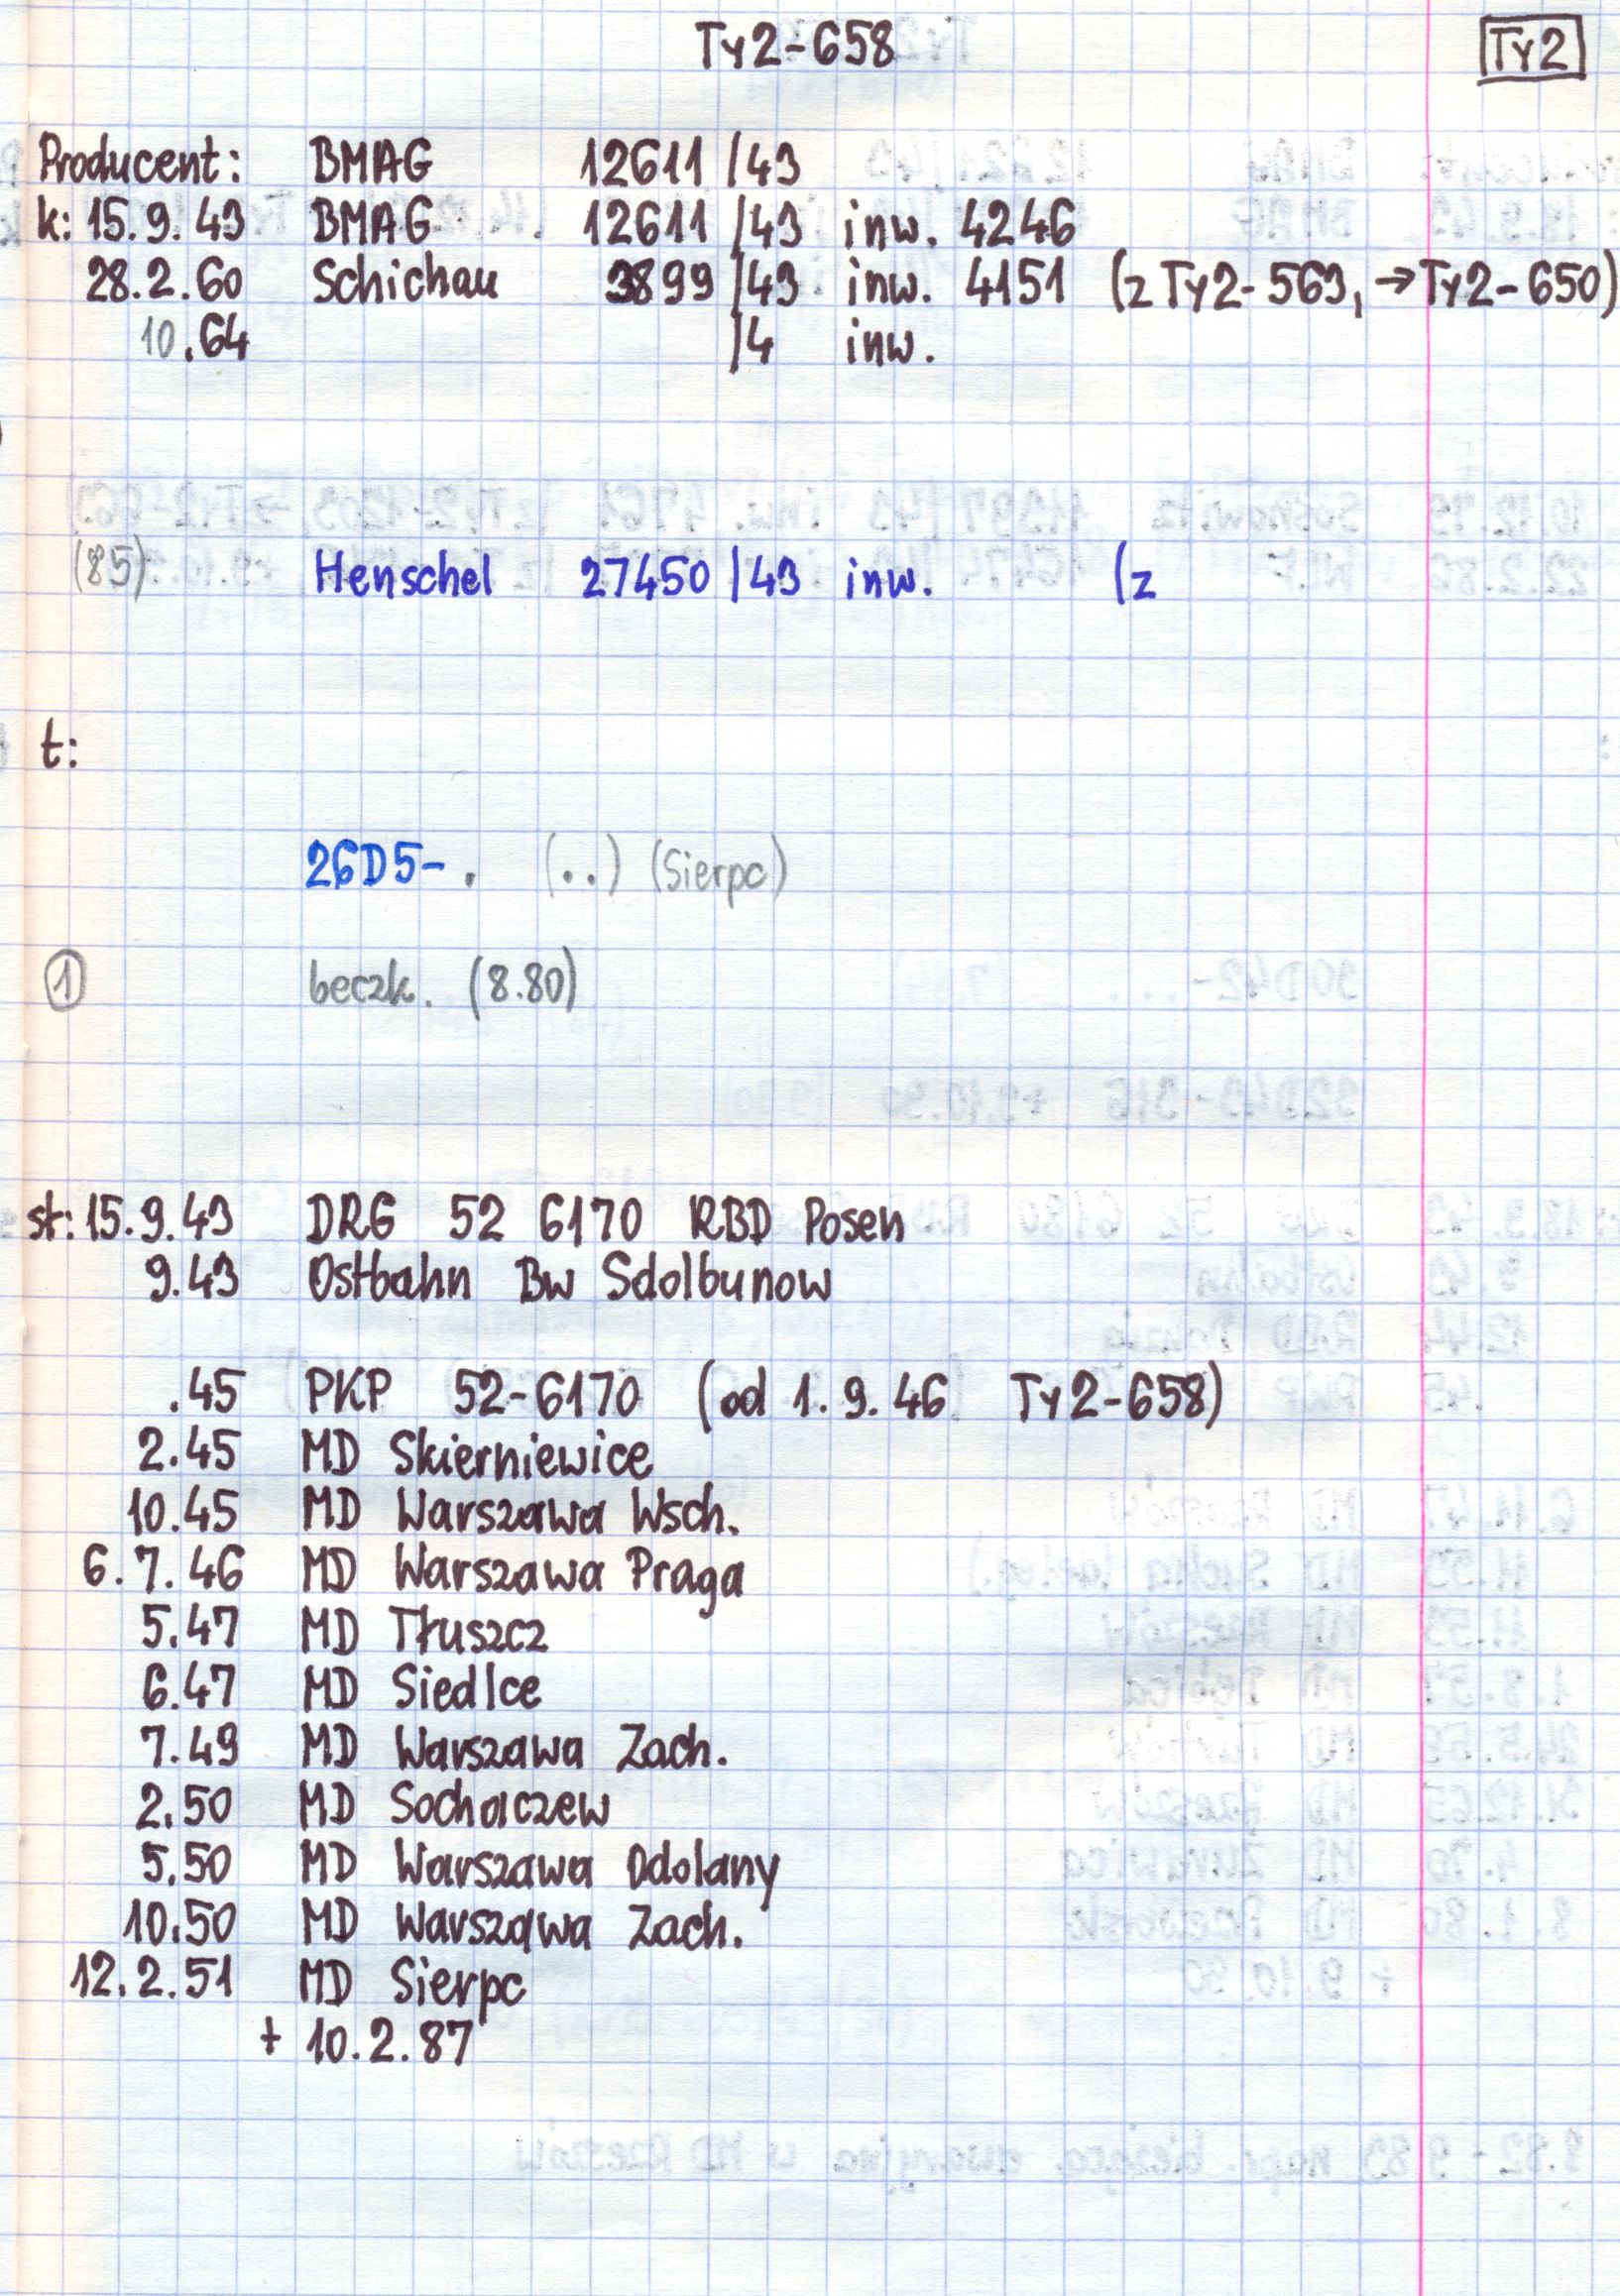 Ty2-658
Ty2
Producent: BMAG 12611 /43
k: 15.9.43 BMAG 12611 /43 inw. 4246
28.2.60 Schichau 3899 /43 inw. 4151 (z Ty2-563, → Ty2-650)
10.64 /4 inw.
(85) Henschel 27450 /43 inw. (z
t:
26D5- . (..) (Sierpc)
① beczk. (8.80)
st: 15.9.43 DRG 52 6170 RBD Posen
9.43 Ostbahn Bw Sdolbunow
.45 PKP 52-6170 (od 1.9.46 Ty2-658)
2.45 MD Skierniewice
10.45 MD Warszawa Wsch.
6.7.46 MD Warszawa Praga
5.47 MD Tłuszcz
6.47 MD Siedlce
7.49 MD Warszawa Zach.
2.50 MD Sochaczew
5.50 MD Warszawa Odolany
10.50 MD Warszawa Zach.
12.2.51 MD Sierpc
+ 10.2.87